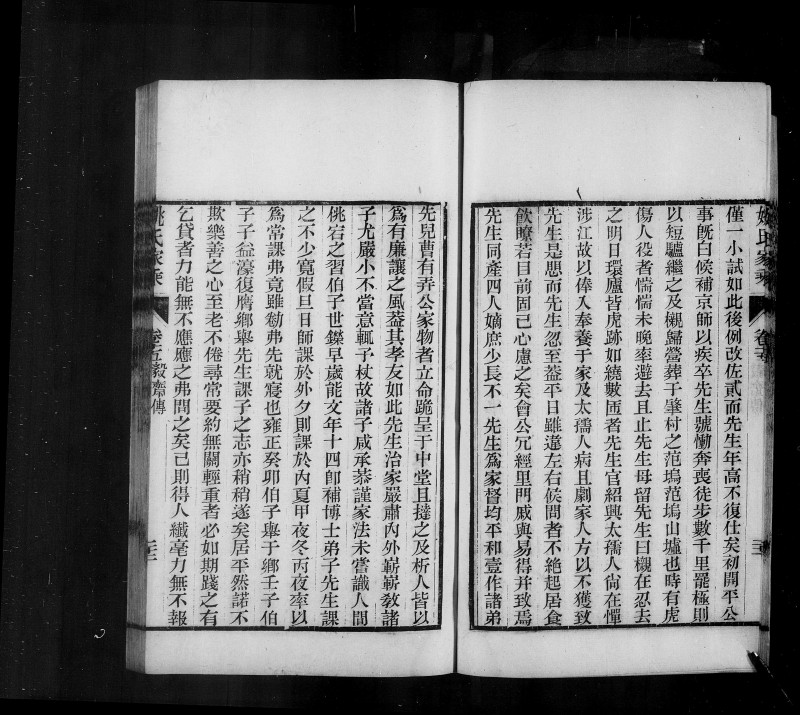 僅一小試如此後例改佐貳而先生年高不復仕矣初開平公
事旣白候補京師以疾卒先生號慟奔喪徒步數千里罷極則
以短驢繼之及櫬歸營葬于肇村之范塢范塢山墟也時有虎
傷人役者惴惴未晚率避去且止先生毋留先生曰櫬在忍去
之明日環廬皆虎跡如繞數匝者先生官紹興太孺人尙在憚
涉江故以俸入奉養于家及太孺人病且劇家人方以不獲致
先生是悲而先生忽至蓋平日雖違左右候問者不絶起居食
飮瞭若目前固已心慮之矣會公冗經里門戚與易得并致焉
先生同產四人嫡庶少長不一先生爲家督均平和壹作諸弟
先兒曹有弄公家物者立命跪呈于中堂且撻之及析人皆以
爲有廉讓之風蓋其孝友如此先生治家嚴肅內外嶄嶄敎諸
子尤嚴小不當意輒予杖故諸子咸承恭謹家法未嘗識人間
佻宕之習伯子世鑅早歲能文年十四卽補博士弟子先生課
之不少寬假旦日師課於外夕則課於內夏甲夜冬丙夜率以
爲常課弗竟雖勌弗先就寢也雍正癸卯伯子舉于鄉壬子伯
子子益濠復膺鄉舉先生課子之志亦稍稍遂矣居平然諾不
欺樂善之心至老不倦尋常要約無關輕重者必如期踐之有
乞貸者力能無不應應之弗問之矣己則得人纖毫力無不報
姚氏家乘 卷五 毅齋傳